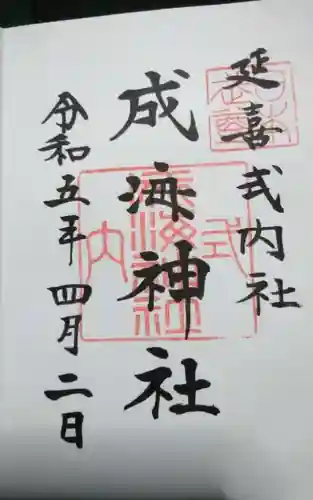 延喜式内社
成海神社
令和五年四月二日
式
内